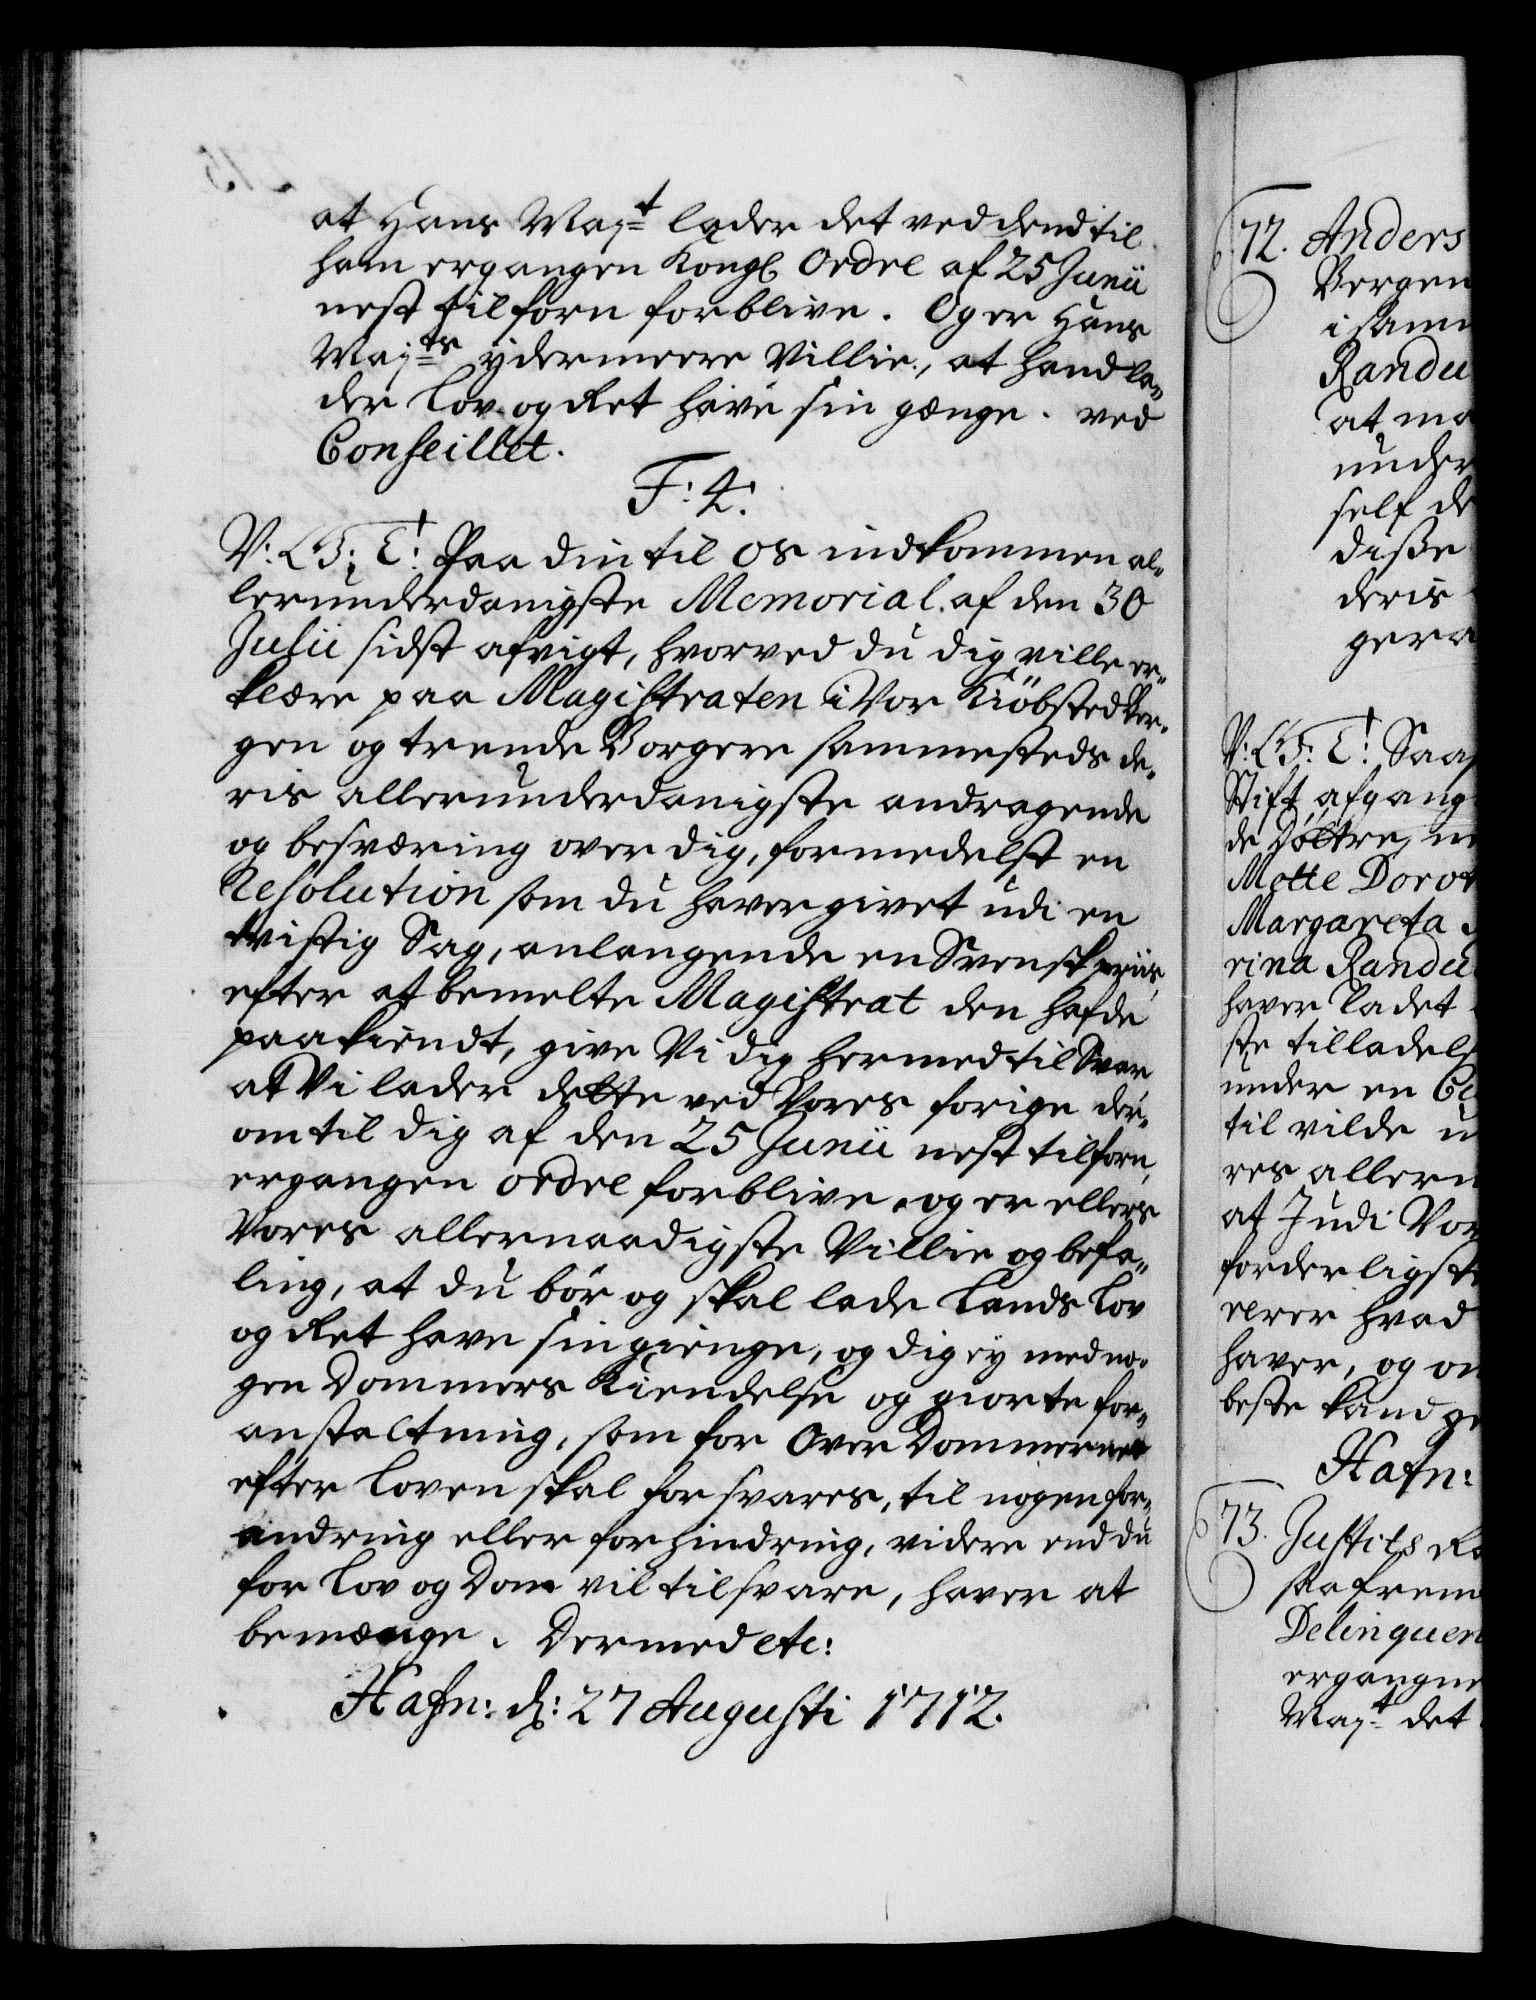 at Hans Maj:t lader det ved dend til
ham ergangen Kongl Ordre af 25 Junii
nest tilforn forblive. Og er Hans
Maj:ts ydermeere Villie, at hand la-
der Lov og Ret have sin gænge. ved
Conseillet.
F: 4.
V: G: T: Paa din til os indkommen al-
lerunderdanigste Memorial af den 30
Julii sidst afvigt, hvorved du dig ville er-
klære paa Magistraten i Vor Kiöbsted Ber-
gen og trende Borgere sammesteds de-
ris allerunderdanigste andragende
og besværing over dig, formedelst en
Resolution som du haver givet udi en
tvistig Sag, anlangende en Svensk priis,
efter at bemelte Magistrat den hafde
paakiendt, give Vi dig hermed til Svar
at Vi lader dette ved Vores forige der-
om til dig af den 25 Junii nest tilforn,
ergangen ordre forblive, og er ellers
Vores allernaadigste Villie og befa-
ling, at du bör og skal lade Lands Lov
og Ret have sin gienge, og dig ey med no-
gen Dommers Kiendelse og giorte for-
anstaltning, som for Over Dommerne
efter Loven skal forsvares, til nogen for-
andring eller forhindring, videre end du
for Lov og Dom vil tilsvare, haver at
bemænge. Dermed etc:
Hafn: d: 27 Augusti 1712.
72. Anders
Bergen
i samm
Randu
at ma
under
self de
disse
deris
gera
V: G: T: Saa
Stift afgang
de Döttre, ne
Mette Dorot
Margareta
rina Randu
haver ladet
ste tilladels
under en
til vilde u
res allern
at I udi Vor
forderligst
erer hvad
haver, og om
beste kand ge
Hafn:
73. Justits Ra
paa frem
Delinquen
ergangne
Maj:t det